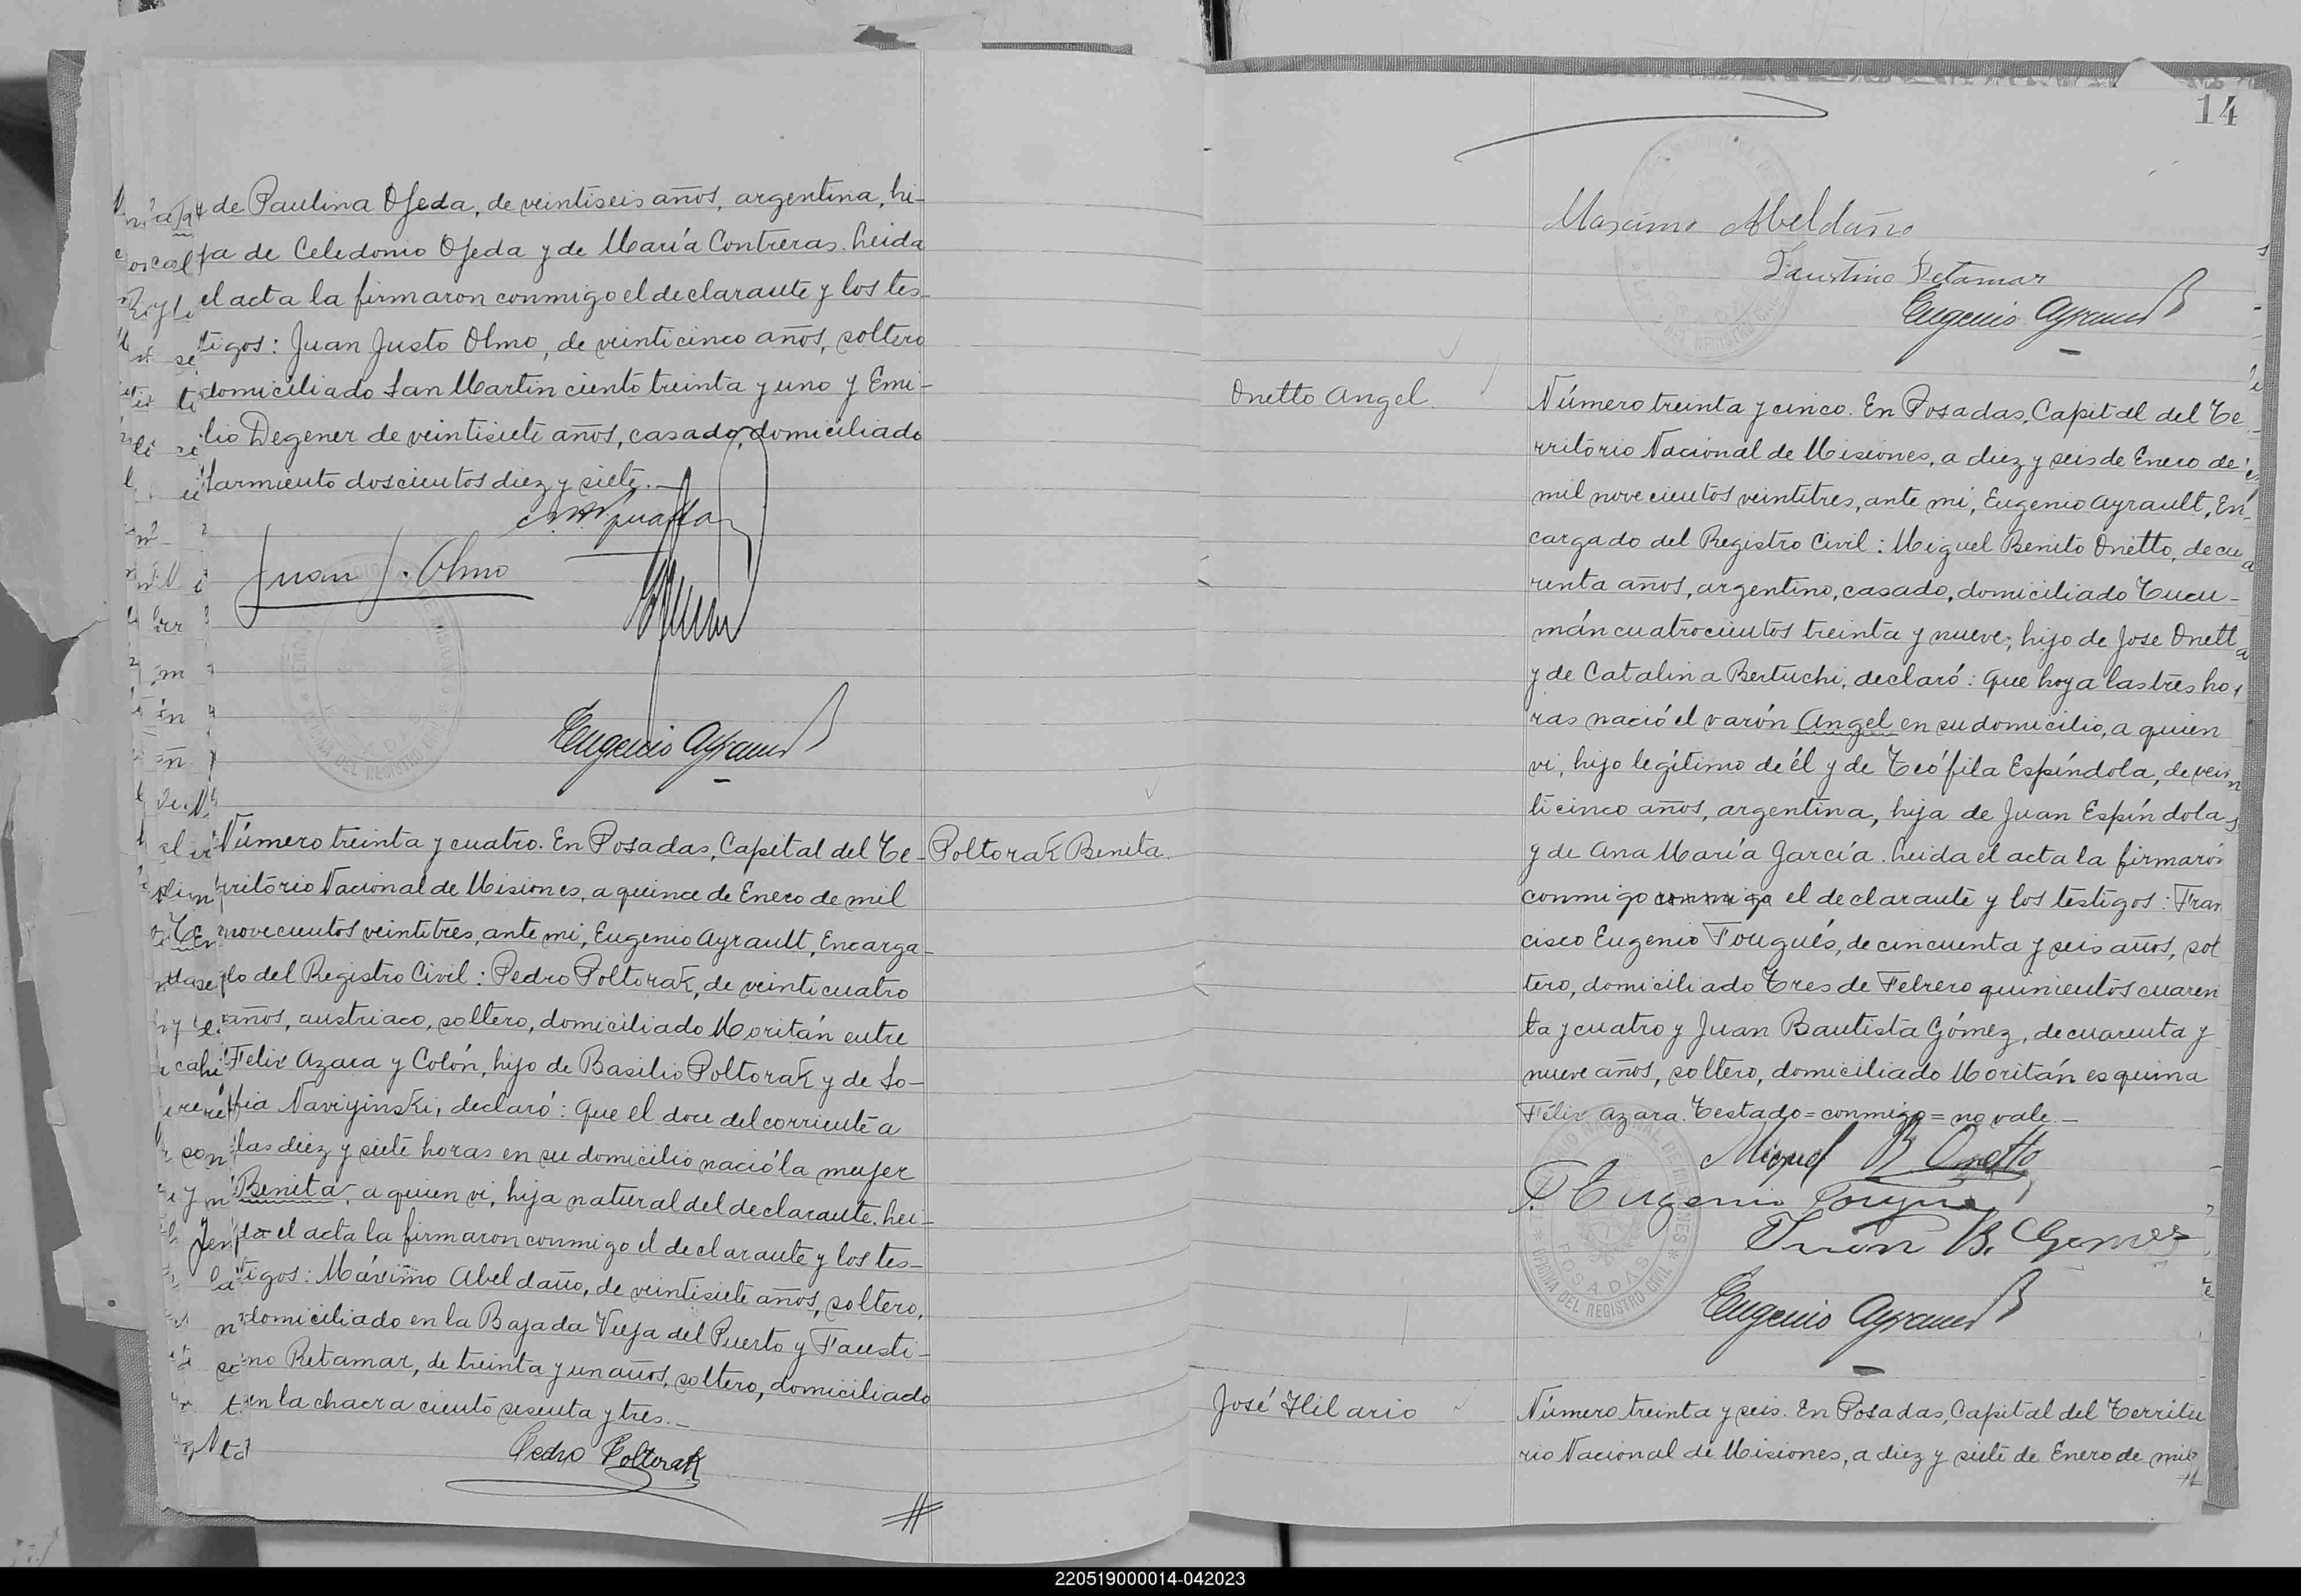 de Paulina Ojeda, de veintiseis años, argentina, hi-
ja de Celedonio Ojeda y de María Contreras. Leida
el acta la firmaron conmigo el declarante y los tes-
tigos: Juan Justo Olmo, de veinticinco años, soltero
domiciliado San Martin ciento treinta y uno y Emi-
lio Degener de veintisiete años, casado, domiciliado
Sarmiento doscientos diez y siete.-
Juan J. Olmo
Eugenio Ayrault
Número treinta y cuatro. En Posadas, Capital del Te-
Poltorak Benita.
rritorio Nacional de Misiones, a quince de Enero de mil
novecientos veintitres, ante mi, Eugenio Ayrault, Encarga-
do del Registro Civil: Pedro Poltorak, de veinticuatro
años, austriaco, soltero, domiciliado Moritán entre
Felix Azara y Colón, hijo de Basilio Poltorak y de So-
fia Naviyinski, declaró: Que el doce del corriente a
las diez y siete horas en su domicilio nació la mujer
Benita, a quien vi, hija natural del declarante. Lei-
da el acta la firmaron conmigo el declarante y los tes-
tigos: Máximo Abeldaño, de veintisiete años, soltero,
domiciliado en la Bajada Vieja del Puerto y Fausti-
no Retamar, de treinta y un años, soltero, domiciliado
en la chacra ciento sesenta y tres.-
Pedro Poltorak
14
Maximo Abeldaño
Faustino Retamar
Eugenio Ayrault
Onetto Angel.
Número treinta y cinco. En Posadas, Capital del Te-
rritorio Nacional de Misiones, a diez y seis de Enero de
mil novecientos veintitres, ante mi, Eugenio Ayrault, En-
cargado del Registro Civil: Miguel Benito Onetto, de cua
renta años, argentino, casado, domiciliado Tucu-
mán cuatrocientos treinta y nueve, hijo de Jose Onetto
y de Catalina Bertuchi, declaró: Que hoy a las tres ho-
ras nació el varón Angel en su domicilio, a quien
vi, hijo legítimo de él y de Teófila Espíndola, de vein
ticinco años, argentina, hija de Juan Espíndola,
y de Ana María García. Leida el acta la firmaron
conmigo conmigo el declarante y los testigos: Fran
cisco Eugenio Fougués, de cincuenta y seis años, sol
tero, domiciliado Tres de Febrero quinientos cuaren
ta y cuatro y Juan Bautista Gómez, de cuarenta y
nueve años, soltero, domiciliado Moritán esquina
Félix Azara. Testado=conmigo=no vale.-
Miguel B. Onetto
F. Eugenio Fougués
Juan B. Gomez
POSADAS
OFICINA DEL REGISTRO CIVIL
Eugenio Ayrault
José Hilario
Número treinta y seis. En Posadas, Capital del Territo
rio Nacional de Misiones, a diez y siete de Enero de mil
220519000014-042023